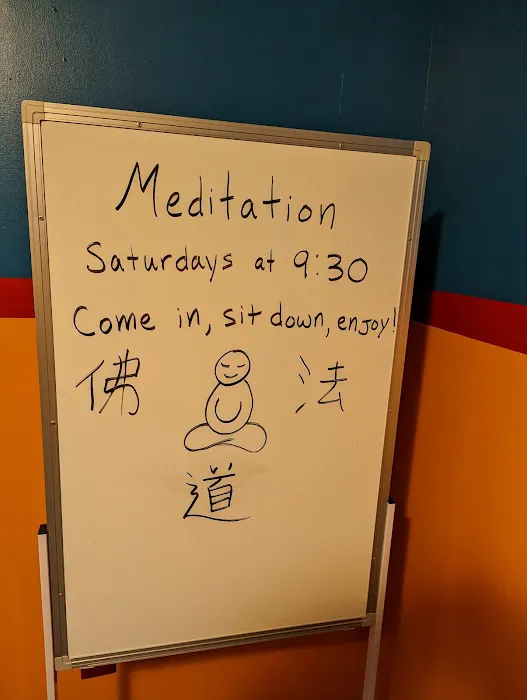 Meditation
Saturdays at 9:30
Come in, sit down, enjoy!
佛 法
道